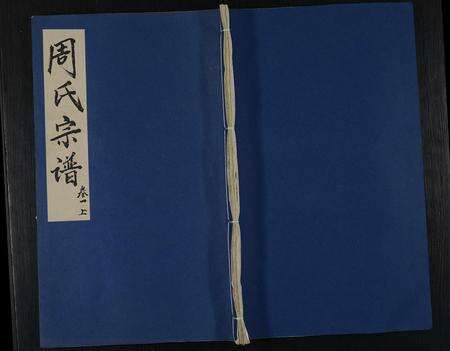 周氏宗谱
卷一上